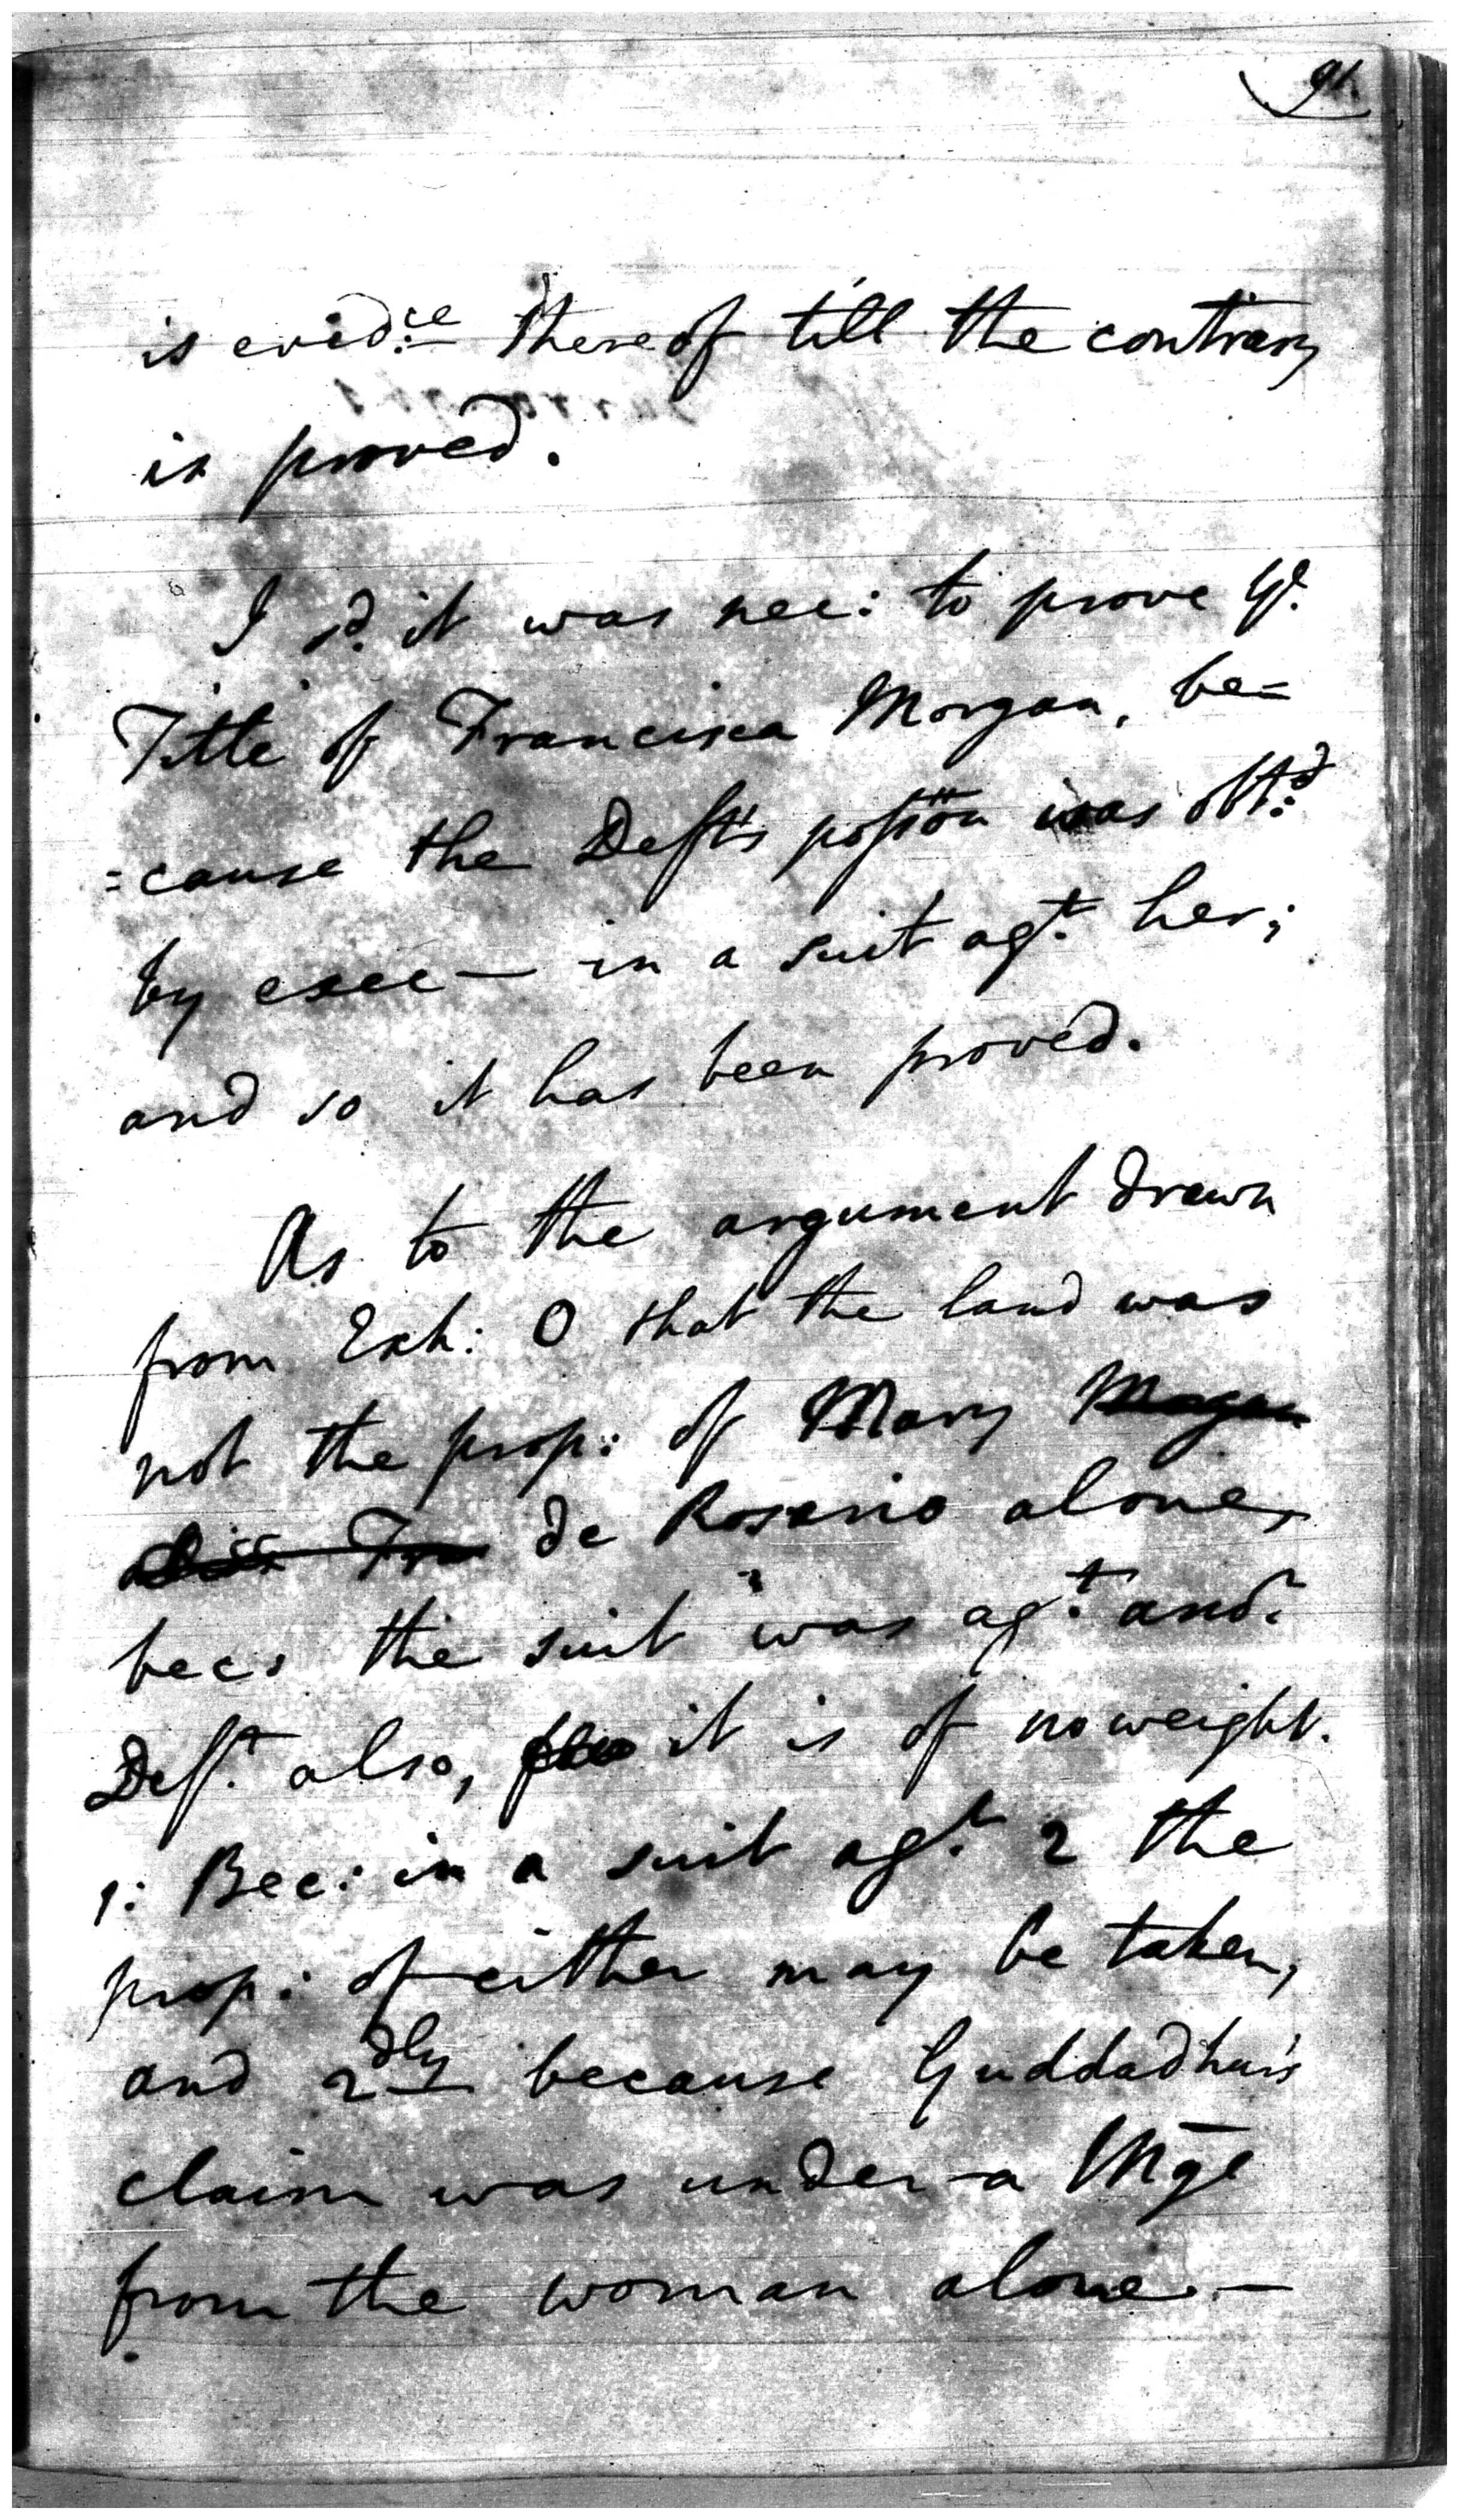 91.
is evid:ce thereof till the contrary
is proved.
I sd. it was nec: to prove ye.
Title of Francisca Morgan, be=
=cause the Defts possion was obt:d
by exec— in a suit agt. her;
and so it has been proved.
As to the argument drawn
from Exh: O that the land was
not the prop: of Mary Morgan
alias Fra de Rosario alone,
becs the suit was agt. anor.
Deft. also, it is of no weight.
1: Bec: in a suit agt. 2 the
prop: of either may be taken,
and 2dly because Guddadhur's
claim was under a Mge
from the woman alone.—